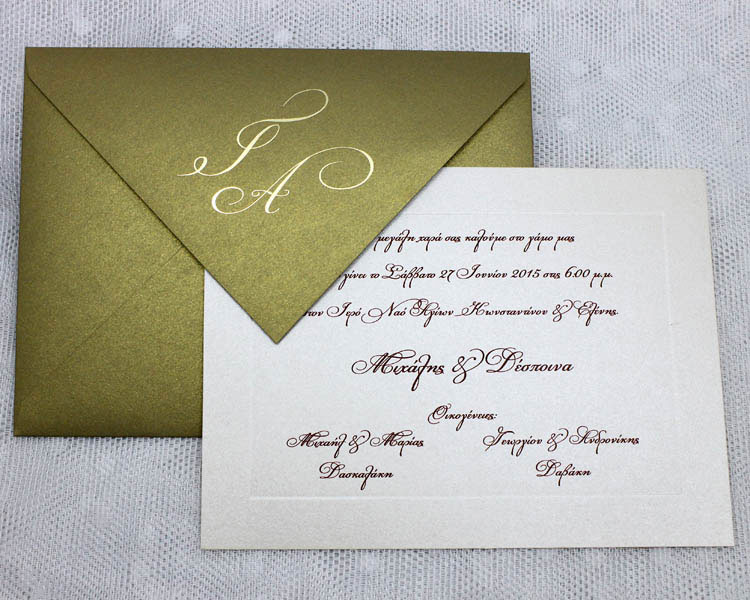 Γ
Α
μεγάλη χαρά σας καλούμε στο γάμο μας
γίνει το Σάββατο 27 Ιουνίου 2015 στις 6.00 μ.μ.
στον Ιερό Ναό Αγίων Κωνσταντίνου & Ελένης.
Μιχάλης & Δέσποινα
Οικογένειες:
Μιχαήλ & Μαρίας
Δασκαλάκη
Γεωργίου & Ανδρονίκης
Δαβάκη